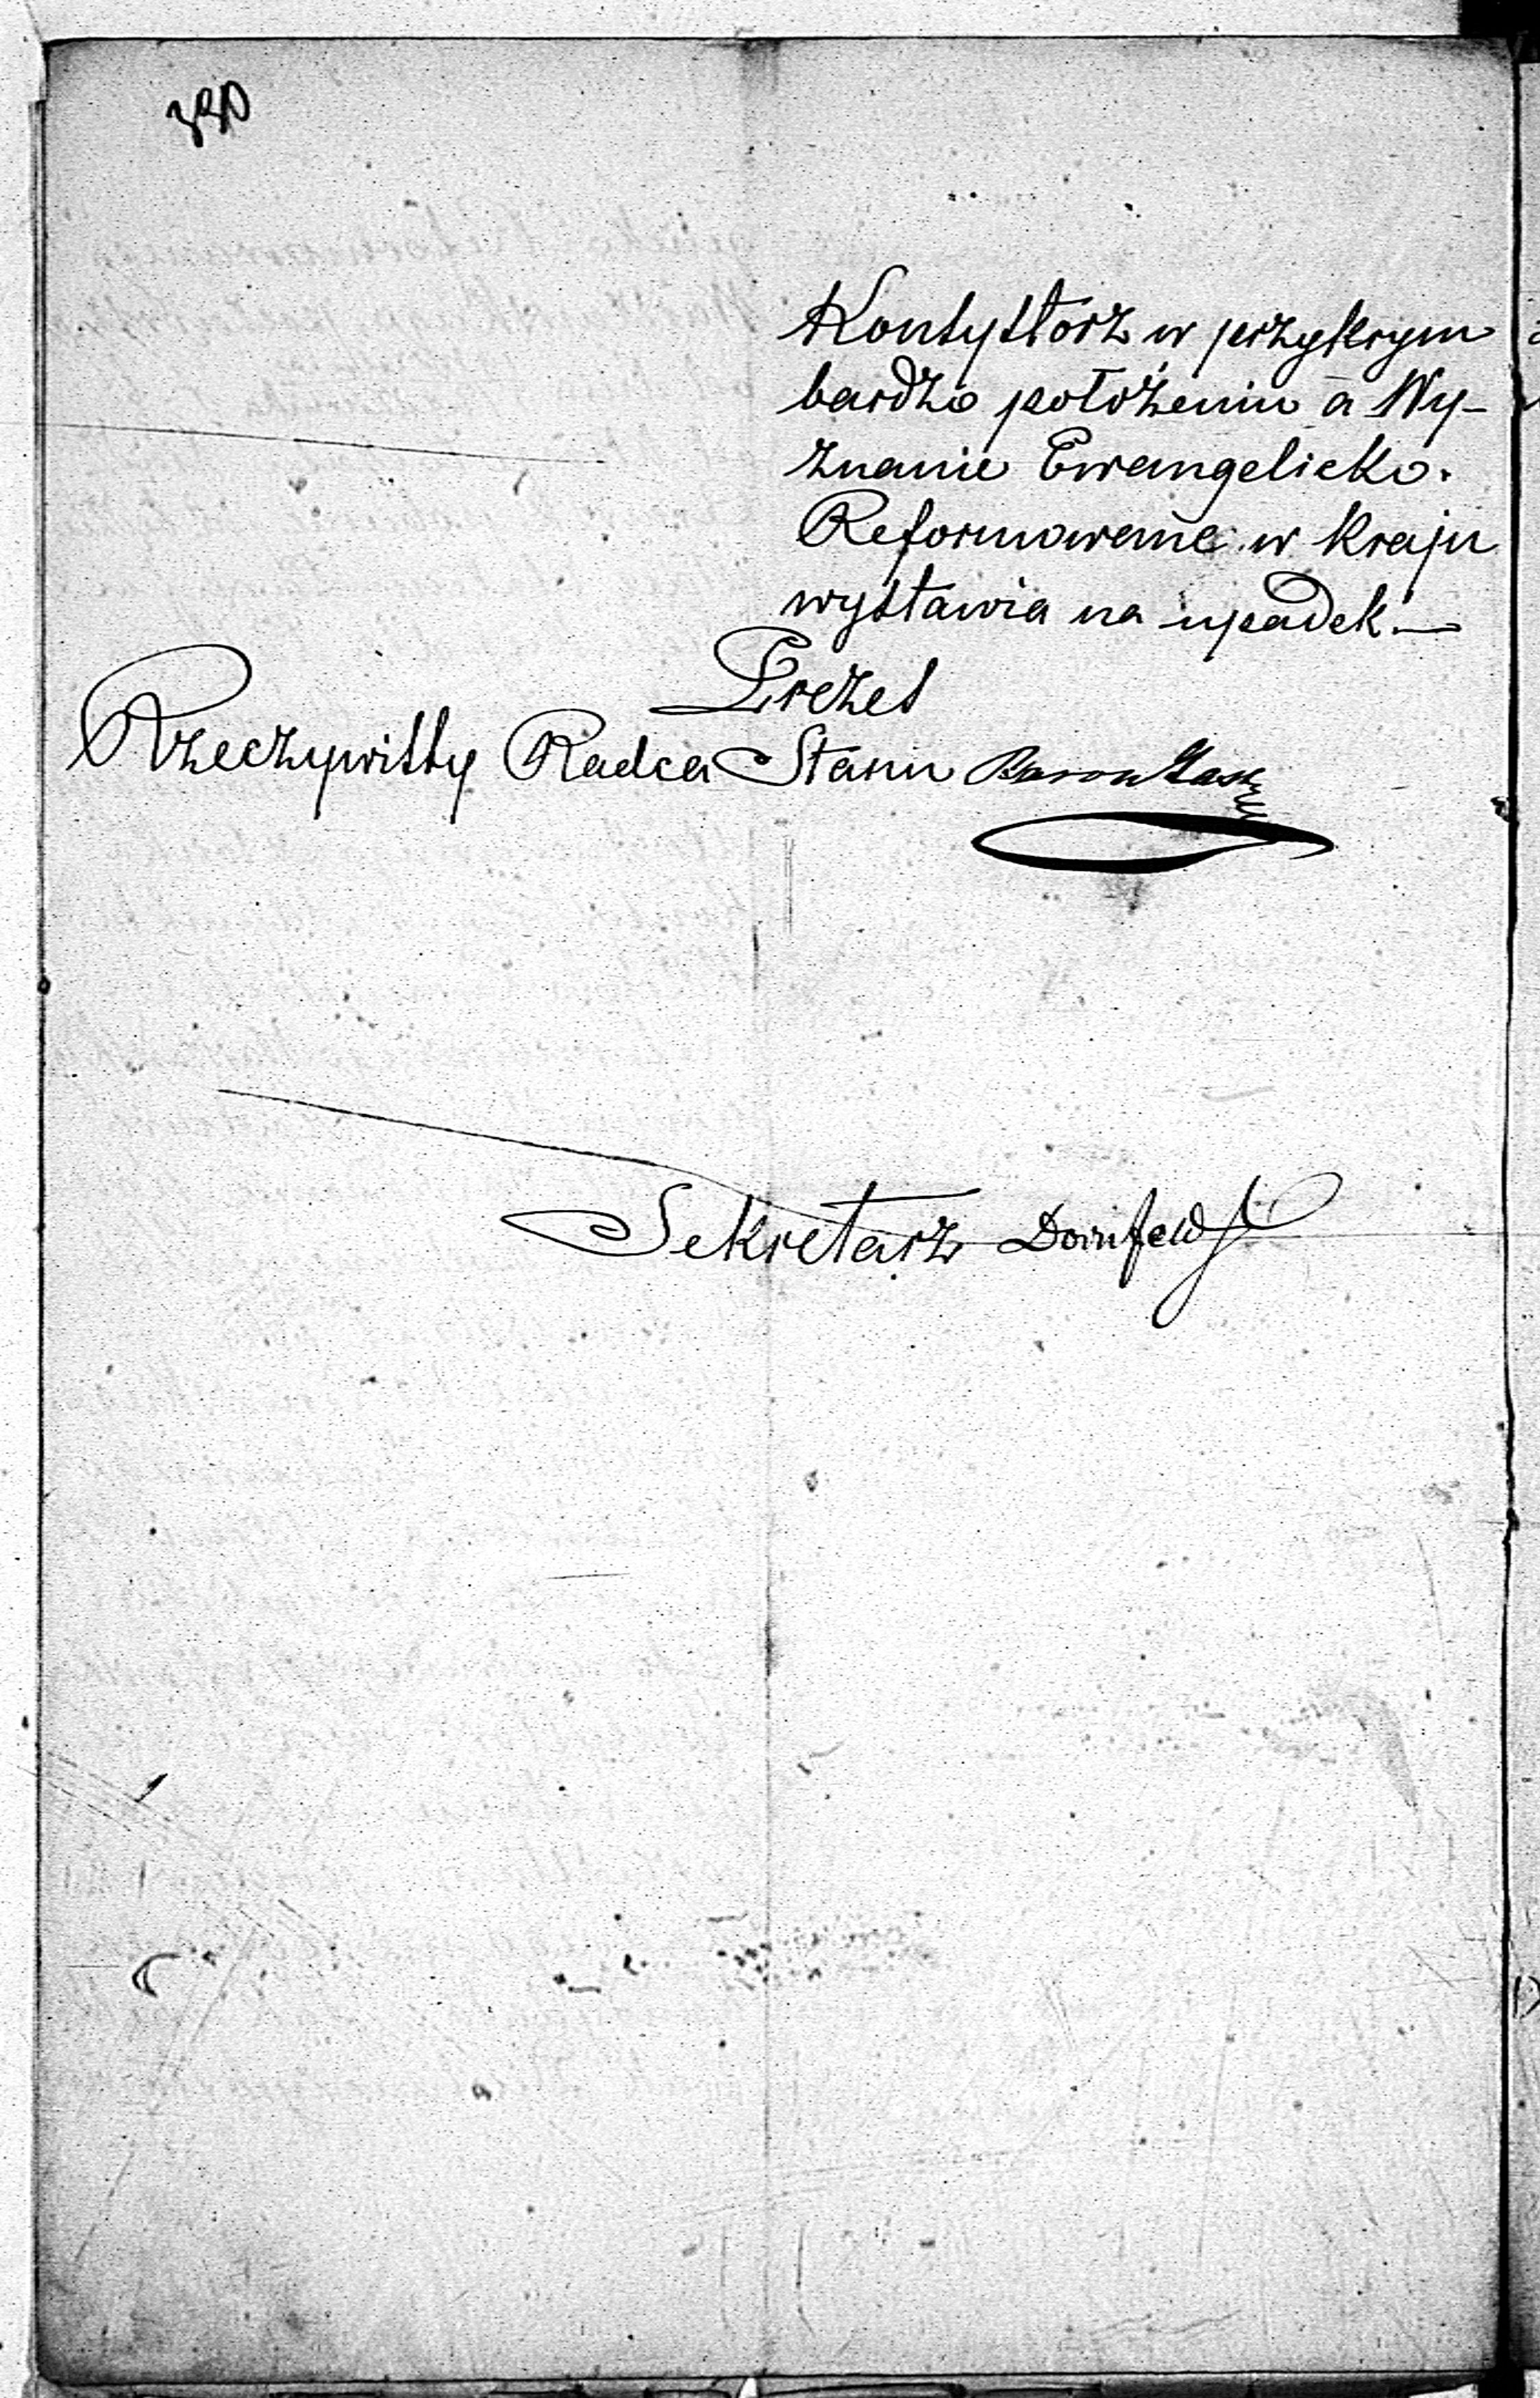 Konsystorz w przykrym
bardzo położeniu a Wy-
znanie Ewangelicko.
Reformowane w kraju
wystawia na upadek.—
Prezes
Rzeczywisty Radca Stanu Baron
Sekretarz Dornfeld